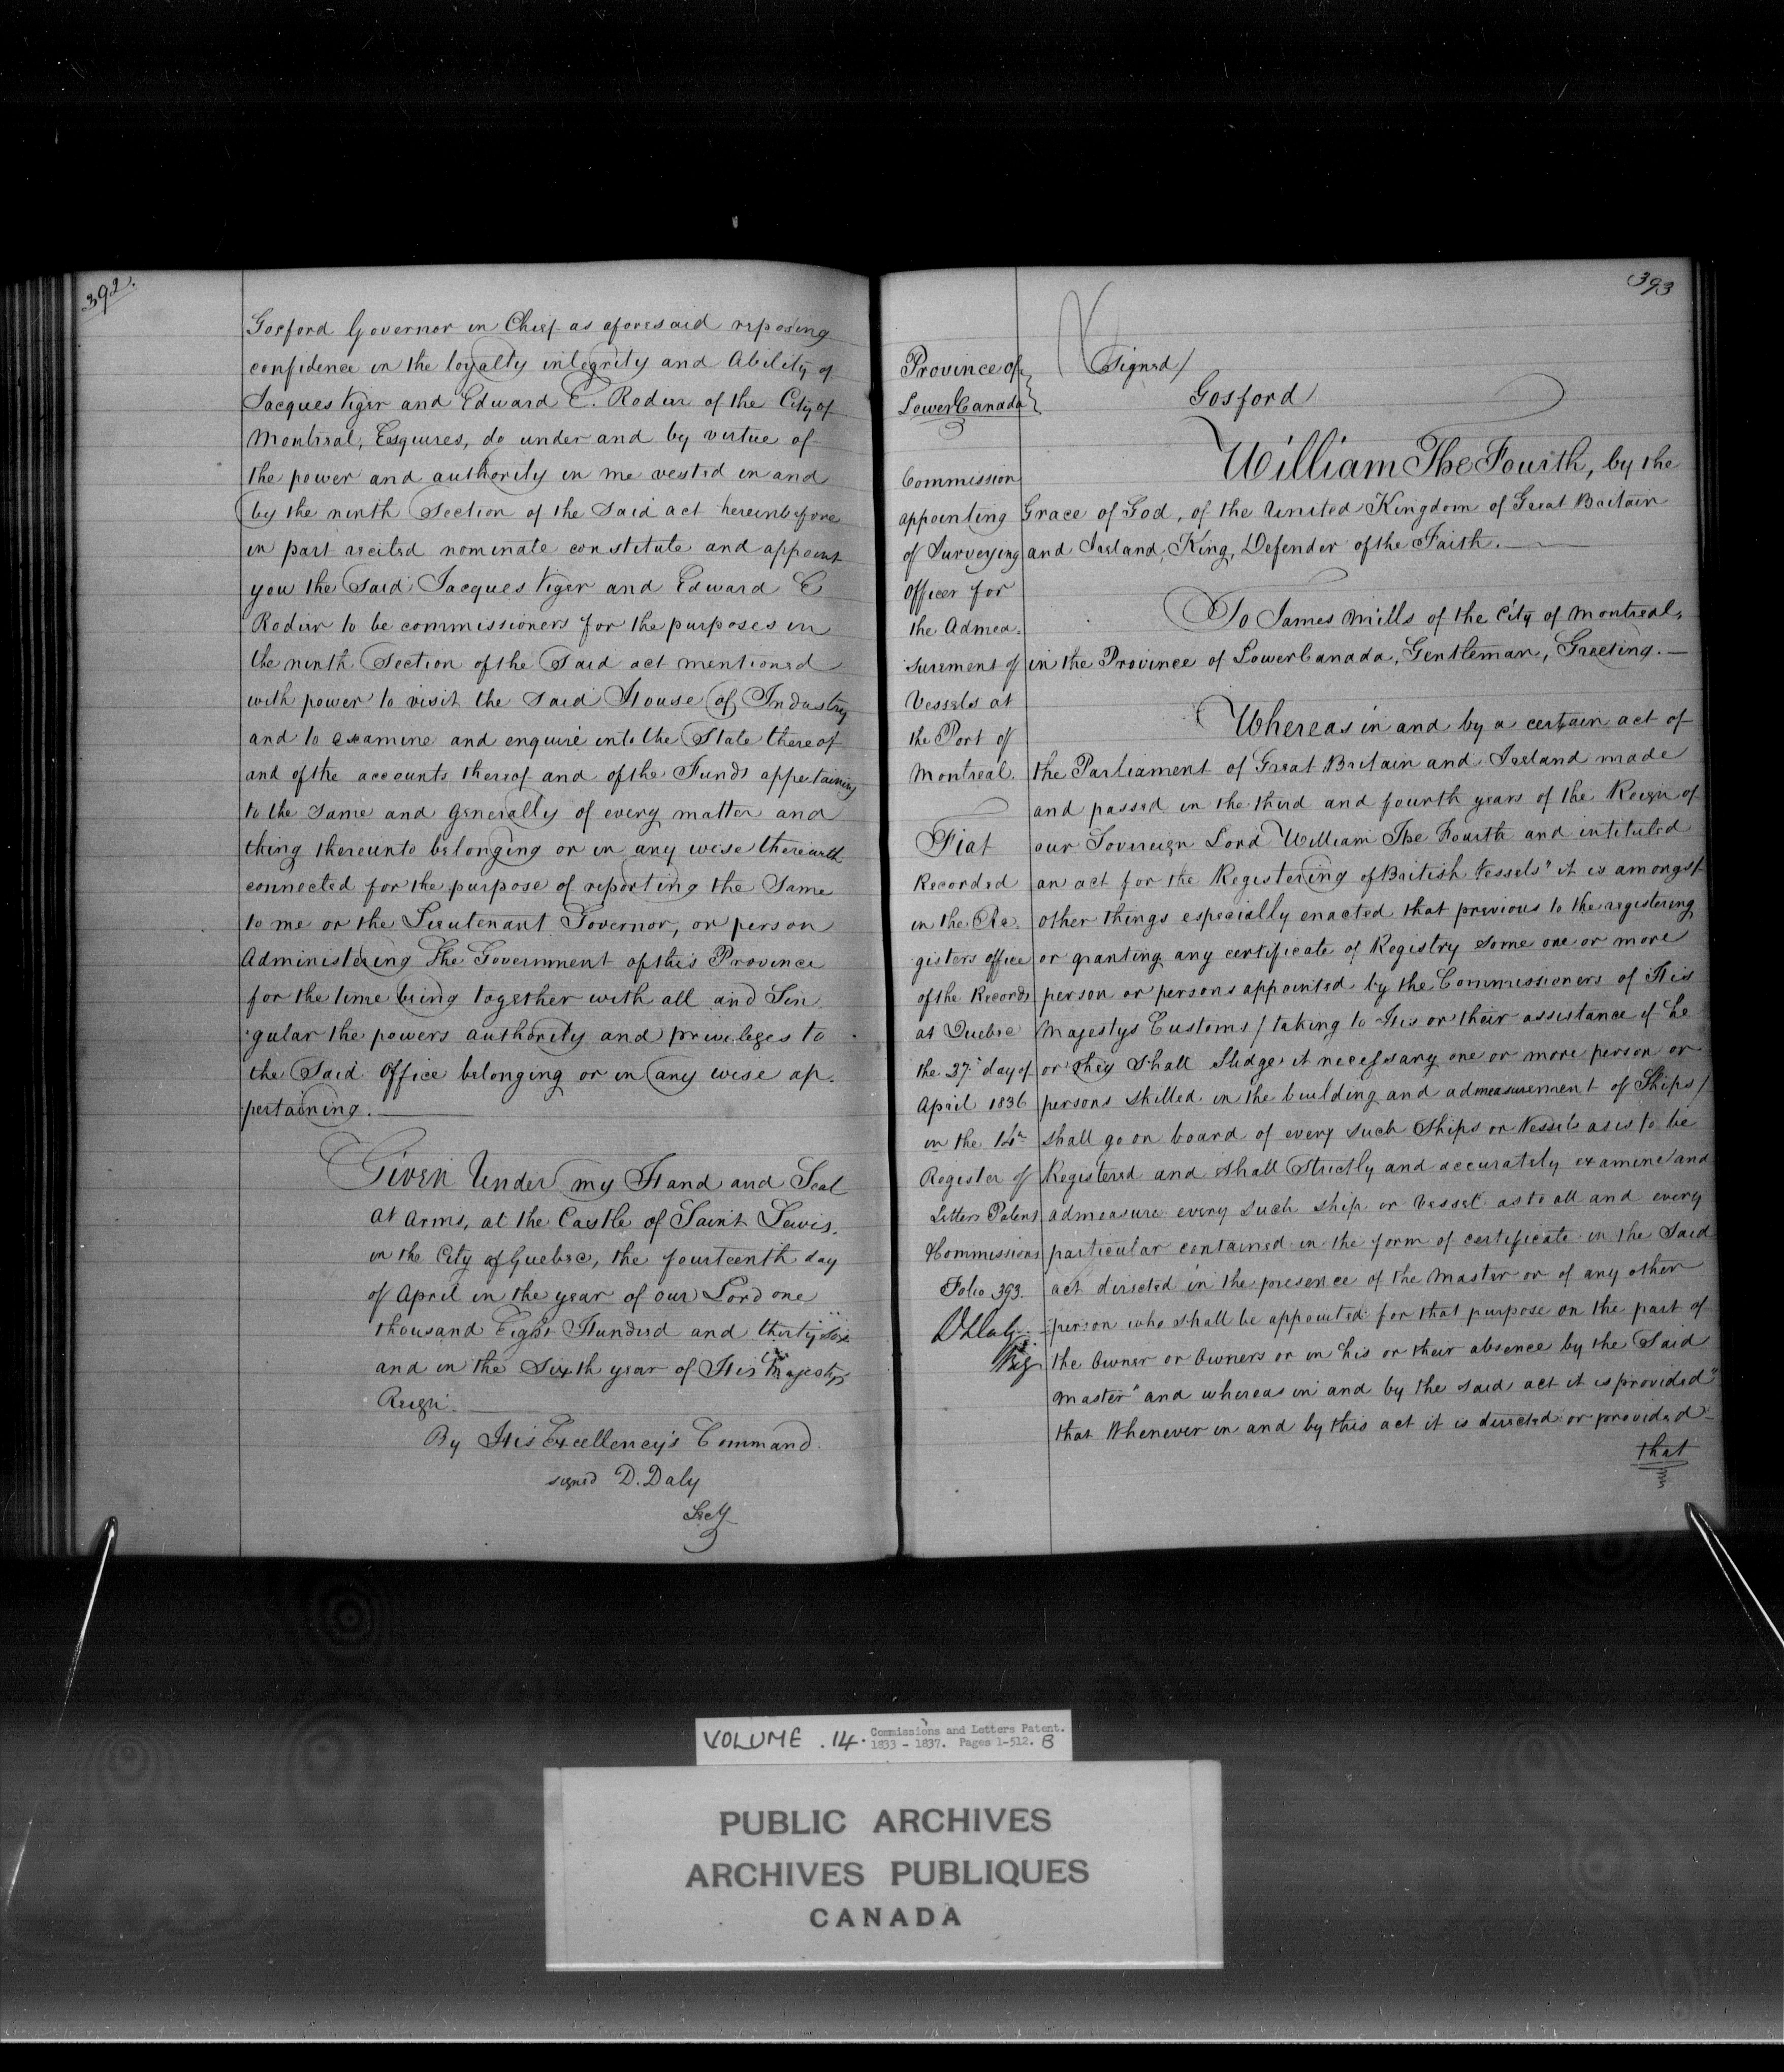 392.
Gosford Governor in Chief as aforesaid reposing
confidence in the loyalty integrity and Ability of
Jacques Viger and Edward E. Rodier of the City of
Montreal, Esquires, do under and by virtue of
the power and authority in me vested in and
by the ninth Section of the Said act hereinbefore
in part recited nominate constitute and appoint
you the Said Jacques Viger and Edward E
Rodier to be commissioners for the purposes in
the ninth Section of the Said act mentioned
with power to visit the Said House of Industry
and to examine and enquire into the State thereof
and of the accounts thereof and of the Funds appertaining
to the Same and generally of every matter and
thing thereunto belonging or in any wise therewith
connected for the purpose of reporting the Same
to me or the Lieutenant Governor, or person
Administering The Government of this Province
for the time being together with all and Sin
gular the powers authority and privileges to
the Said Office belonging or in any wise ap.
pertaining.
Given Under my Hand and Seal
at arms, at the Castle of Saint Lewis.
in the City of Quebec, the fourteenth day
of April in the year of our Lord one
thousand Eight Hundred and thirty Six
and in the Sixth year of His Majestys
Reign.
By His Excellency's Command.
signed D. Daly
Secy
393
Province of
Lower Canada
Commission
appointing
of Surveying
Officer for
the Admea-
surement of
Vessels at
the Port of
Montreal.
Fiat
Recorded
in the Re.
gisters office
of the Records
at Quebec
the 27th day of
April 1836
in the 14th
Register of
Letters Patent
&Commissions
Folio 393.
D Daly
Reg
Signed/
Gosford
William The Fourth, by the
Grace of God, of the United Kingdom of Great Britain
and Ireland, King, Defender of the Faith.
To James Mills of the City of Montreal,
in the Province of Lower Canada, Gentleman, Greeting.
Whereas in and by a certain act of
the Parliament of Great Britain and Ireland made
and passed in the third and fourth years of the Reign of
our Sovereign Lord William The Fourth and intituled
an act for the Registering of British Vessels" it is amongst
other things especially enacted that previous to the registering
or granting any certificate of Registry some one or more
person or persons appointed by the Commissioners of His
Majestys Customs / taking to His or their assistance if he
or they shall Judge it necessary one or more person or
persons skilled in the building and admeasurement of Ships /
shall go on board of every such Ships or Vessels as is to be
Registered and shall Strictly and accurately examine and
admeasure every such ship or Vessel as to all and every
particular contained in the form of certificate in the Said
act directed in the presence of the master or of any other
person who shall be appointed for that purpose on the part of
the Owner or Owners or in his or their absence by the Said
master" and whereas in and by the said act it is provided"
that Whenever in and by this act it is directed or provided
that
VOLUME . 14. Commissions and Letters Patent.
1833 - 1837. Pages 1-512. B
PUBLIC ARCHIVES
ARCHIVES PUBLIQUES
CANADA